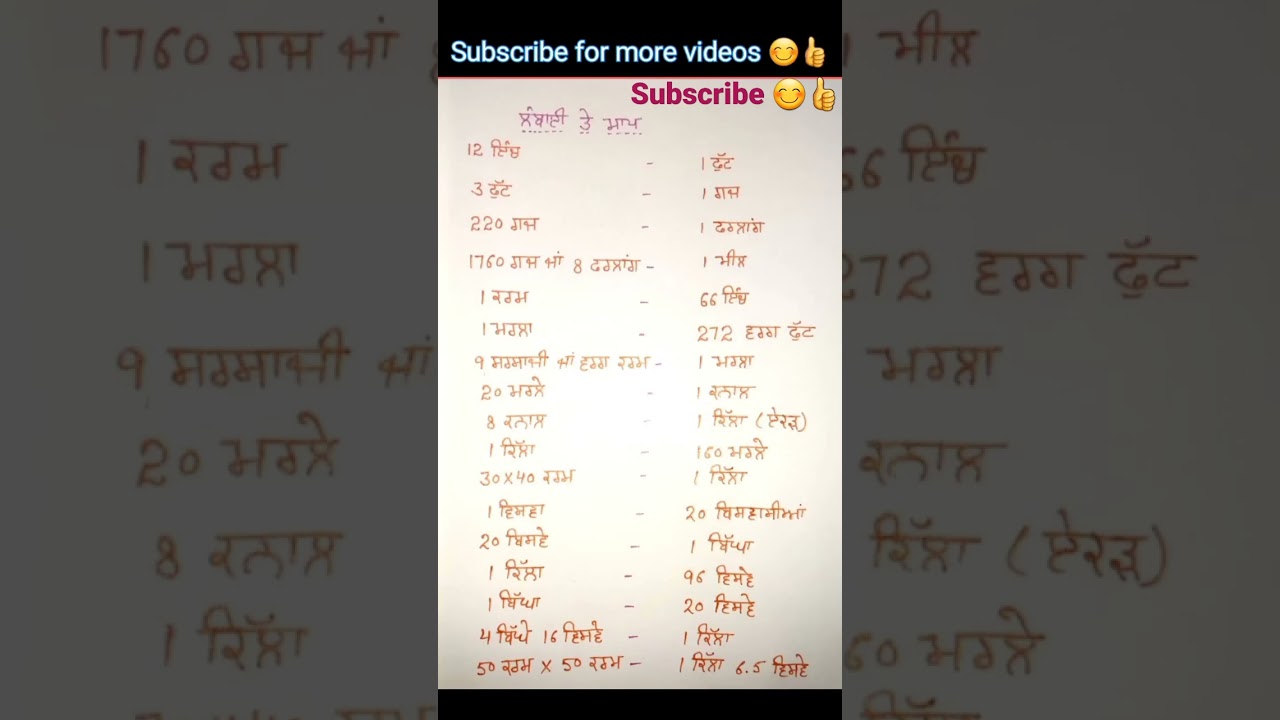 Subscribe for more videos 😊👍
Subscribe 😊👍
ਲੰਬਾਈ ਤੇ ਮਾਪ
12 ਇੰਚ - 1 ਫੁੱਟ
3 ਫੁੱਟ - 1 ਗਜ
220 ਗਜ - 1 ਫਰਲਾਂਗ
1760 ਗਜ ਜਾਂ 8 ਫਰਲਾਂਗ - 1 ਮੀਲ
1 ਕਰਮ - 66 ਇੰਚ
1 ਮਰਲਾ - 272 ਵਰਗ ਫੁੱਟ
9 ਸਰਸਾਹੀ ਜਾਂ ਵਰਗ ਕਰਮ - 1 ਮਰਲਾ
20 ਮਰਲੇ - 1 ਕਨਾਲ
8 ਕਨਾਲ - 1 ਕਿੱਲਾ (ਏਕੜ)
1 ਕਿੱਲਾ - 160 ਮਰਲੇ
30x40 ਕਰਮ - 1 ਕਿੱਲਾ
1 ਵਿਸਵਾ - 20 ਬਿਸਵਾਸੀਆਂ
20 ਬਿਸਵੇ - 1 ਬਿੱਘਾ
1 ਕਿੱਲਾ - 96 ਵਿਸਵੇ
1 ਬਿੱਘਾ - 20 ਵਿਸਵੇ
4 ਬਿੱਘੇ 16 ਵਿਸਵੇ - 1 ਕਿੱਲਾ
50 ਕਰਮ x 50 ਕਰਮ - 1 ਕਿੱਲਾ 6.5 ਵਿਸਵੇ